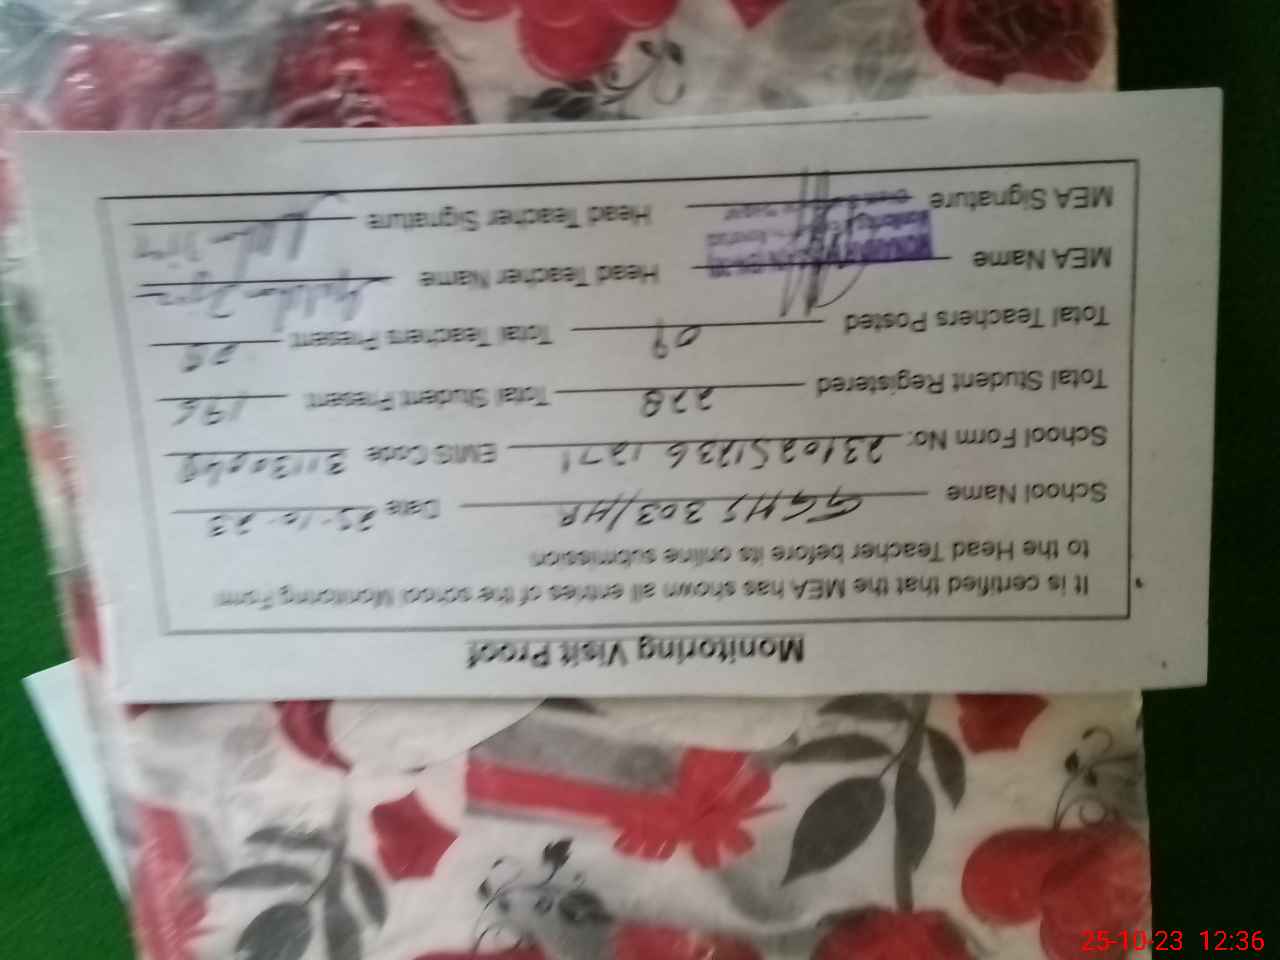 Monitoring Visit Proof
It is certified that the MEA has shown all entries of the school Monitoring Form
to the Head Teacher before its online submission
School Name GGHS 303/HR Date 25-10-23
School Form No: 2310251236 1271 EMIS Code
Total Student Registered 228 Total Student Present
Total Teachers Posted 09 Total Teachers Present
MEA Name Head Teacher Name
MEA Signature Head Teacher Signature
25-10-23 12:36